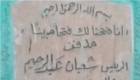 بسم الله الرحمن الرحيم
إنا فتحنا لك فتحا مبينا
مدفن
الريس شعبان عبد الرحيم